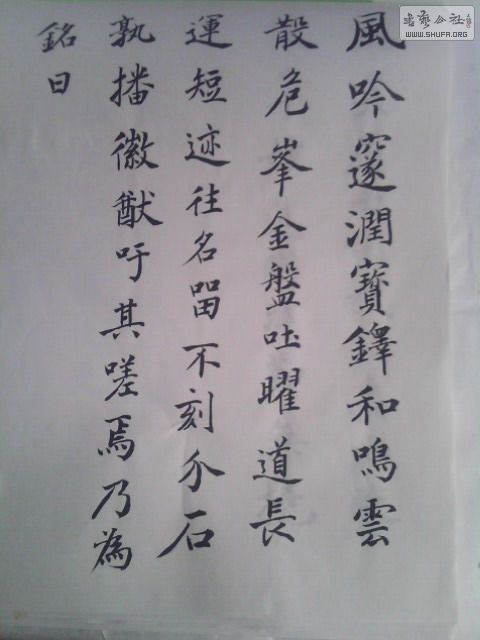 風吟邃潤寶鐸和鳴雲
散危峯金盤吐曜道長
運短迹往名㽞不刻介石
孰播徽猷吁其嗟焉乃為
銘曰
书艺公社
WWW.SHUFA.ORG